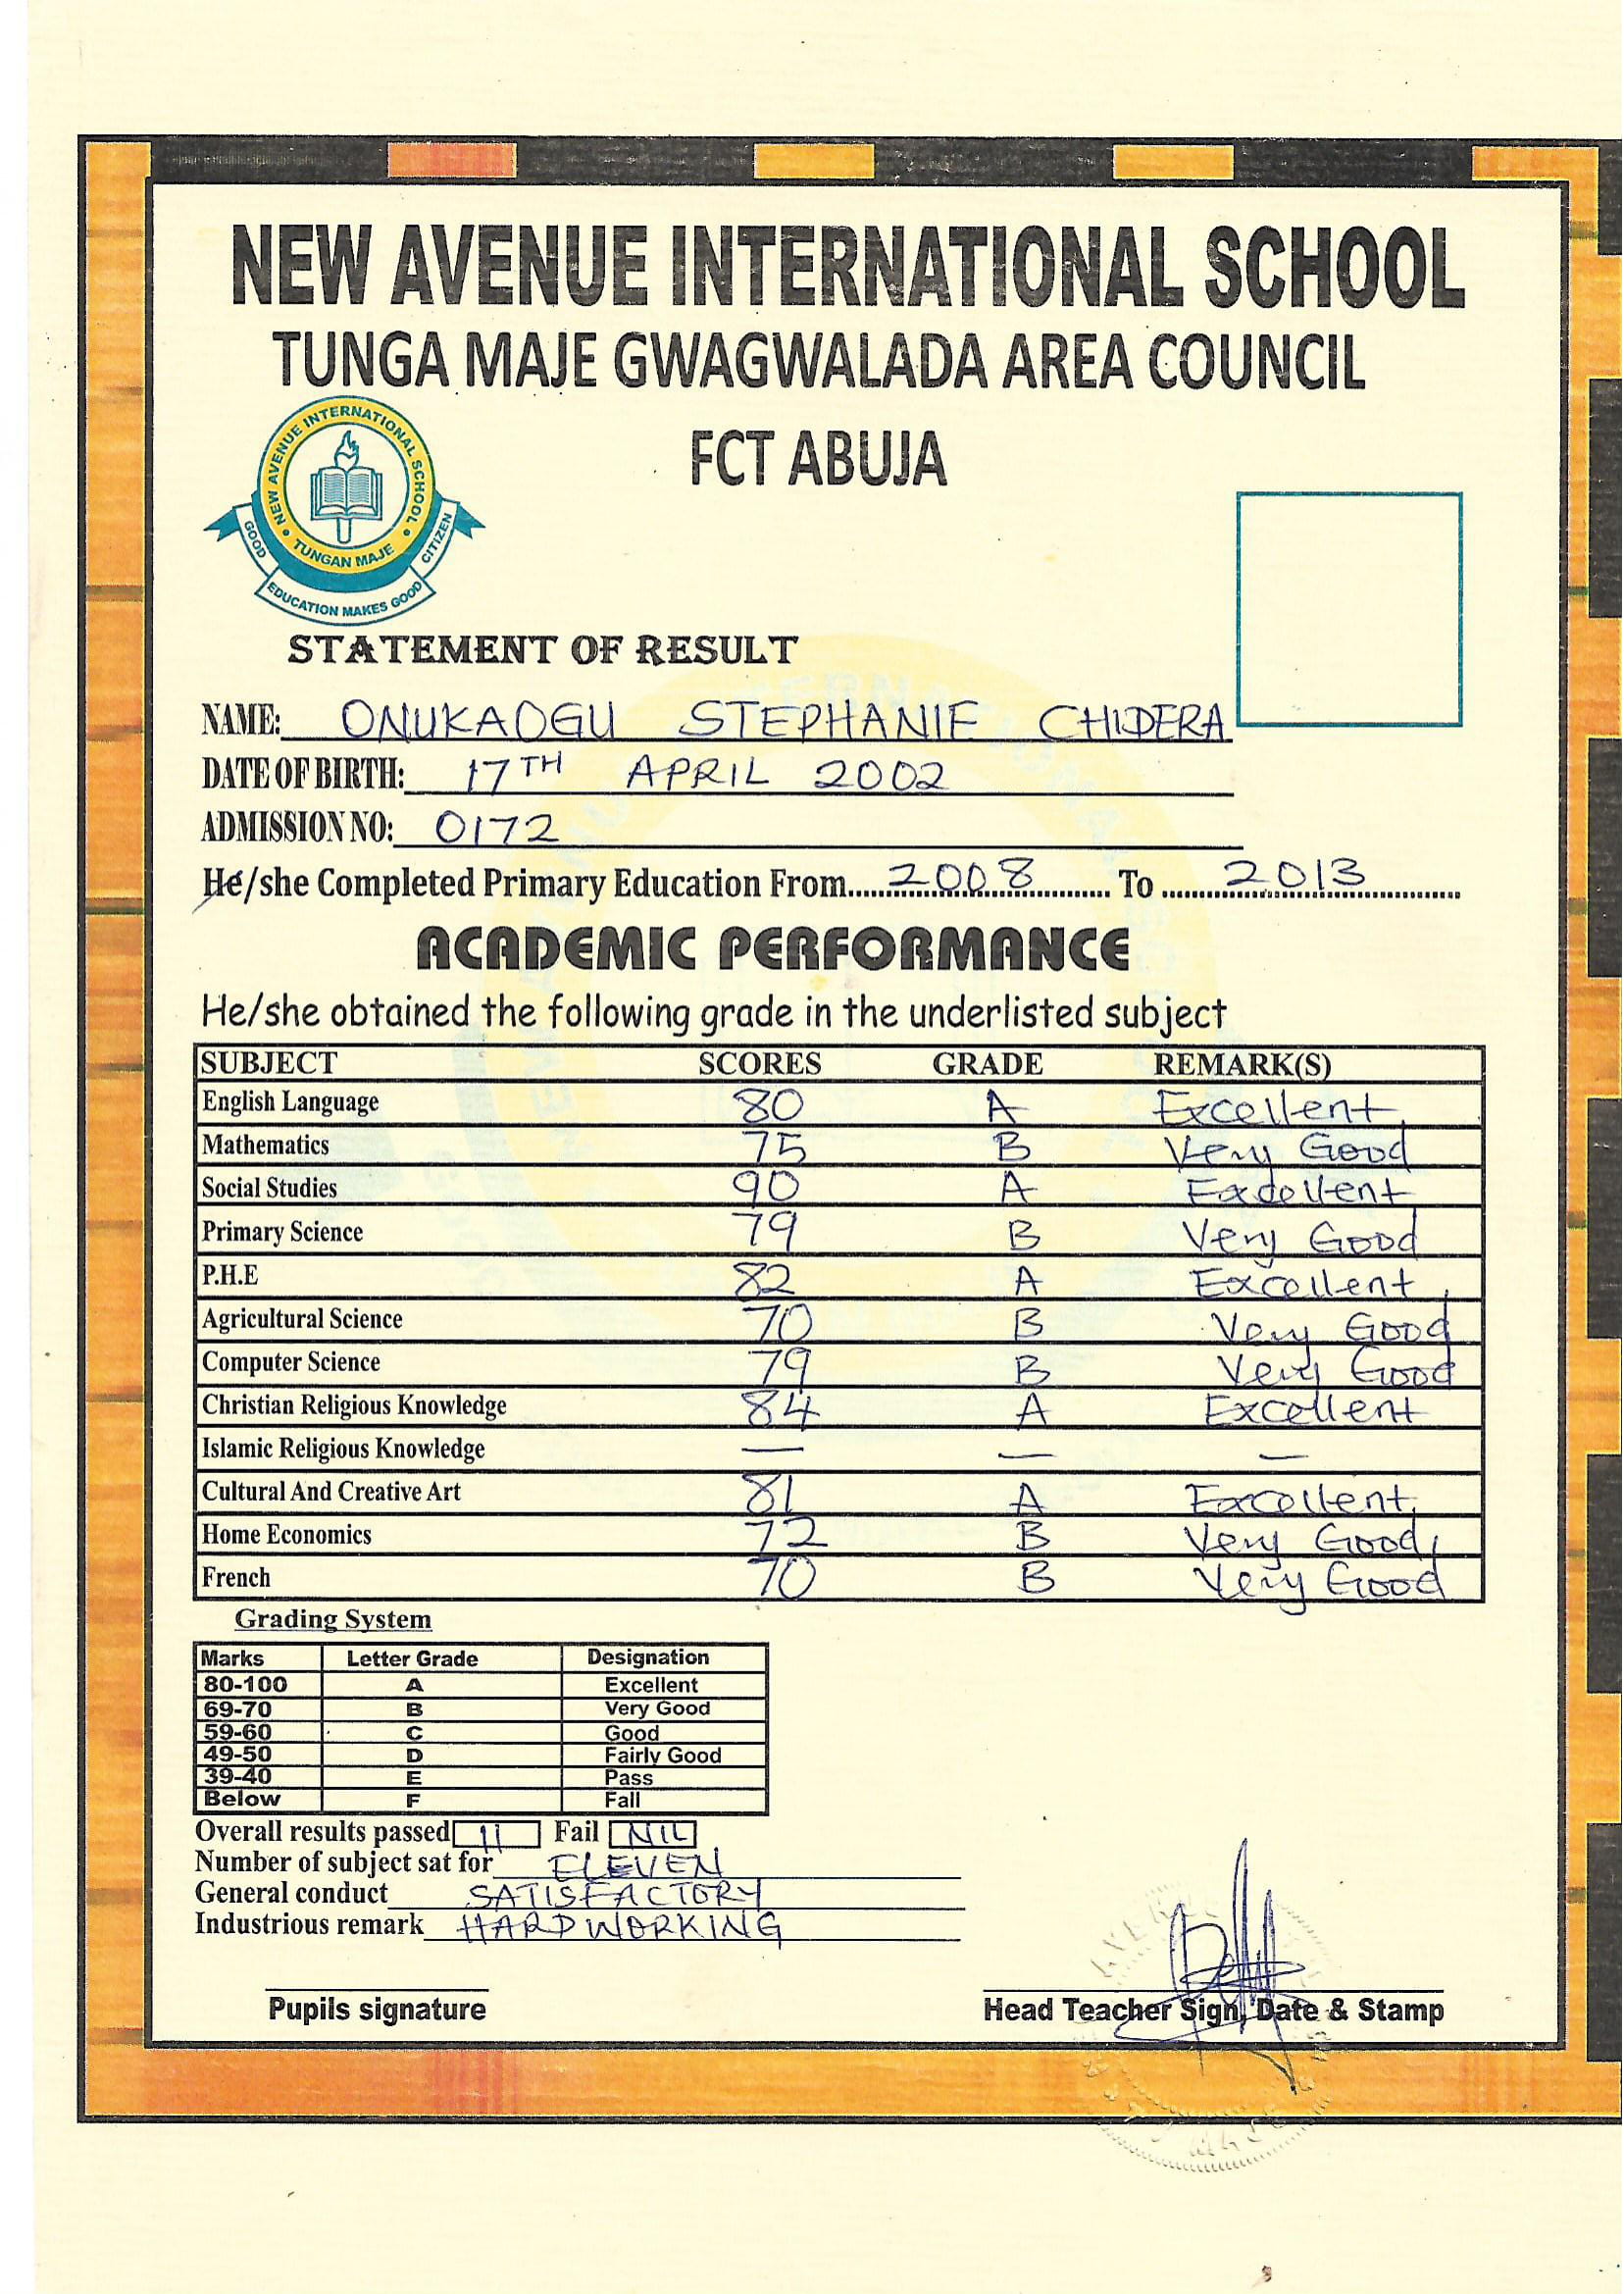 NEW AVENUE INTERNATIONAL SCHOOL
TUNGA MAJE GWAGWALADA AREA COUNCIL
FCT ABUJA
NEW AVENUE INTERNATIONAL SCHOOL
TUNGAN MAJE
GOOD EDUCATION MAKES GOOD CITIZEN
STATEMENT OF RESULT
NAME: ONUKAOGU STEPHANIE CHIDERA
DATE OF BIRTH: 17TH APRIL 2002
ADMISSION NO: 0172
He/she Completed Primary Education From 2008 To 2013
ACADEMIC PERFORMANCE
He/she obtained the following grade in the underlisted subject
SUBJECT SCORES GRADE REMARK(S)
English Language 80 A Excellent
Mathematics 75 B Very Good
Social Studies 90 A Excellent
Primary Science 79 B Very Good
P.H.E 82 A Excellent
Agricultural Science 70 B Very Good
Computer Science 79 B Very Good
Christian Religious Knowledge 84 A Excellent
Islamic Religious Knowledge — — —
Cultural And Creative Art 81 A Excellent
Home Economics 72 B Very Good
French 70 B Very Good
Grading System
Marks Letter Grade Designation
80-100 A Excellent
69-70 B Very Good
59-60 C Good
49-50 D Fairly Good
39-40 E Pass
Below F Fall
Overall results passed 11 Fail NIL
Number of subject sat for ELEVEN
General conduct SATISFACTORY
Industrious remark HARDWORKING
Pupils signature
Head Teacher Sign, Date & Stamp